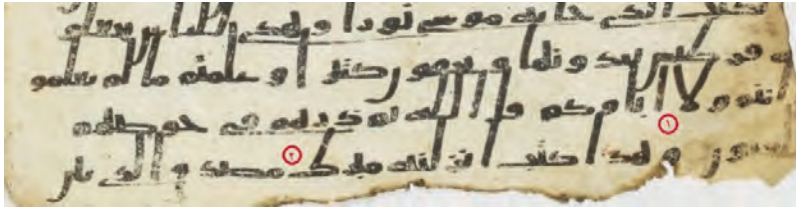 الكتب الذي جا به موسى نورا وهدى للناس تجعلو
نه قرطيس تبدونها وتخفون كثيرا وعلمتم ما لم تعلمو
انتم ولا اباوكم قل الله ثم ذرهم في خوضهم
١
٢
وهذا كتب انزلنه مبرك مصدق الذي بين